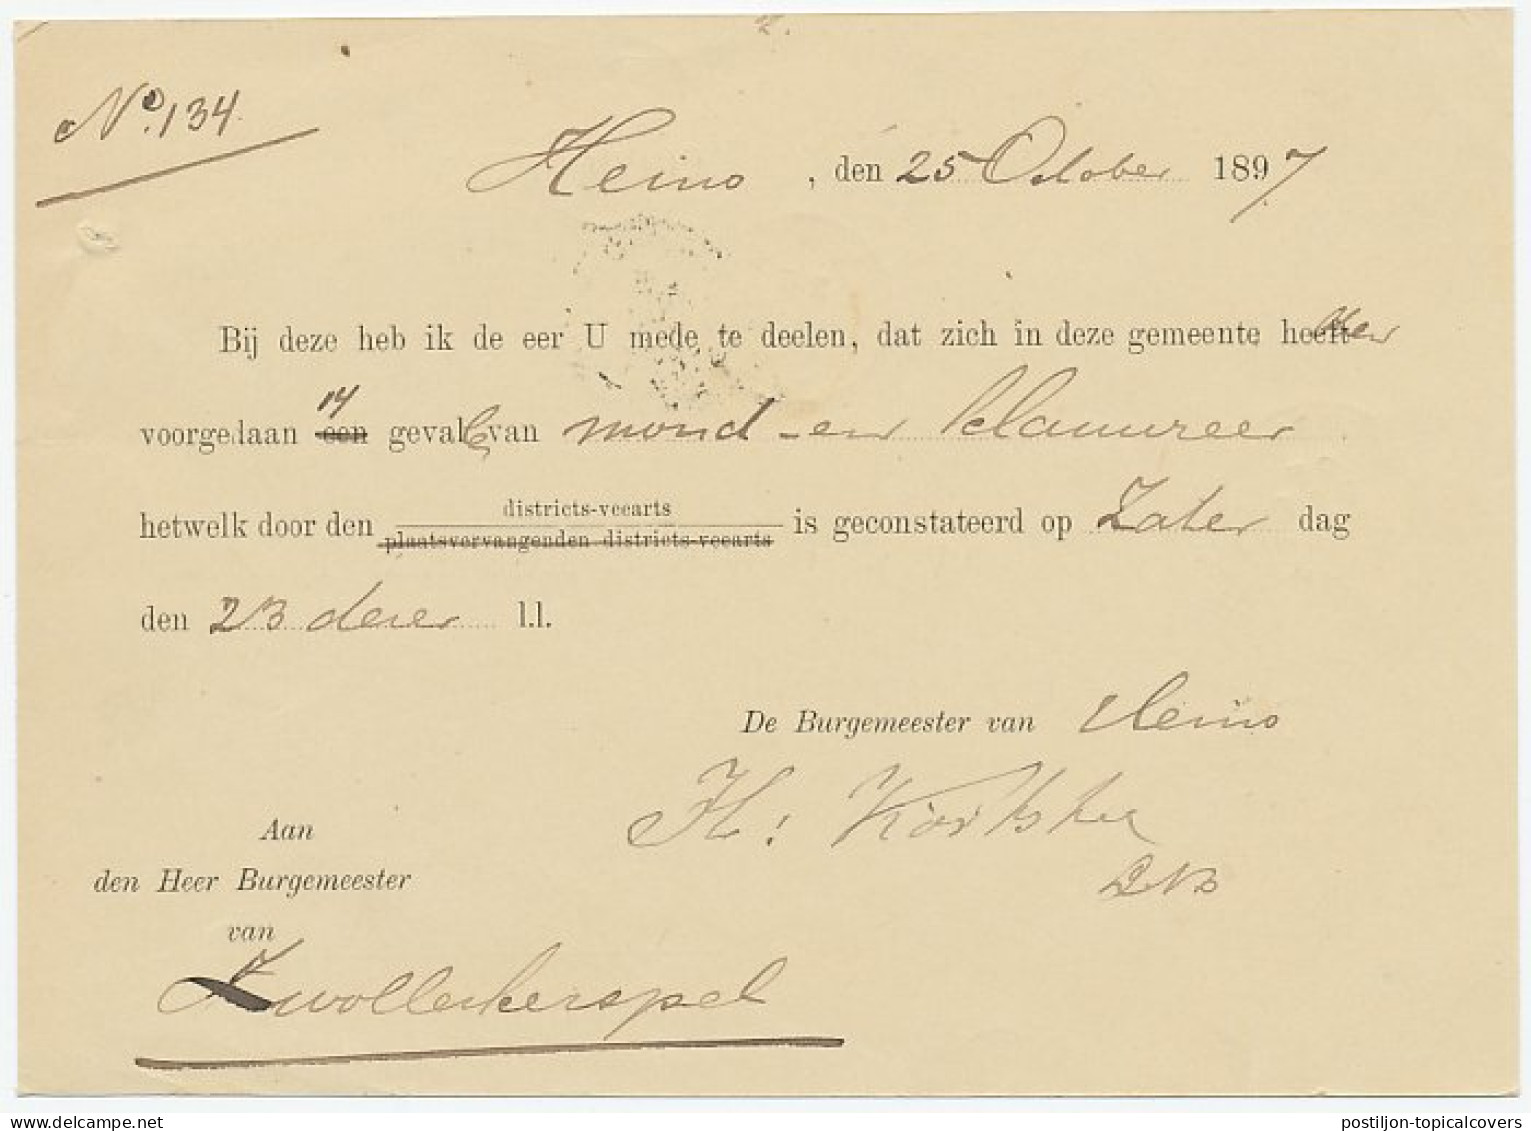 No. 134.
Heino, den 25 October 1897.
Bij deze heb ik de eer U mede te deelen, dat zich in deze gemeente hebben
voorgedaan 14 een gevallen van mond- en klauwzeer
hetwelk door den districts-veearts is geconstateerd op Zaterdag
plaatsvervangenden districts-veearts
den 23 dezer l.l.
De Burgemeester van Heino
H:
Aan
den Heer Burgemeester
van
Zwollerkerspel
postiljon-topicalcovers